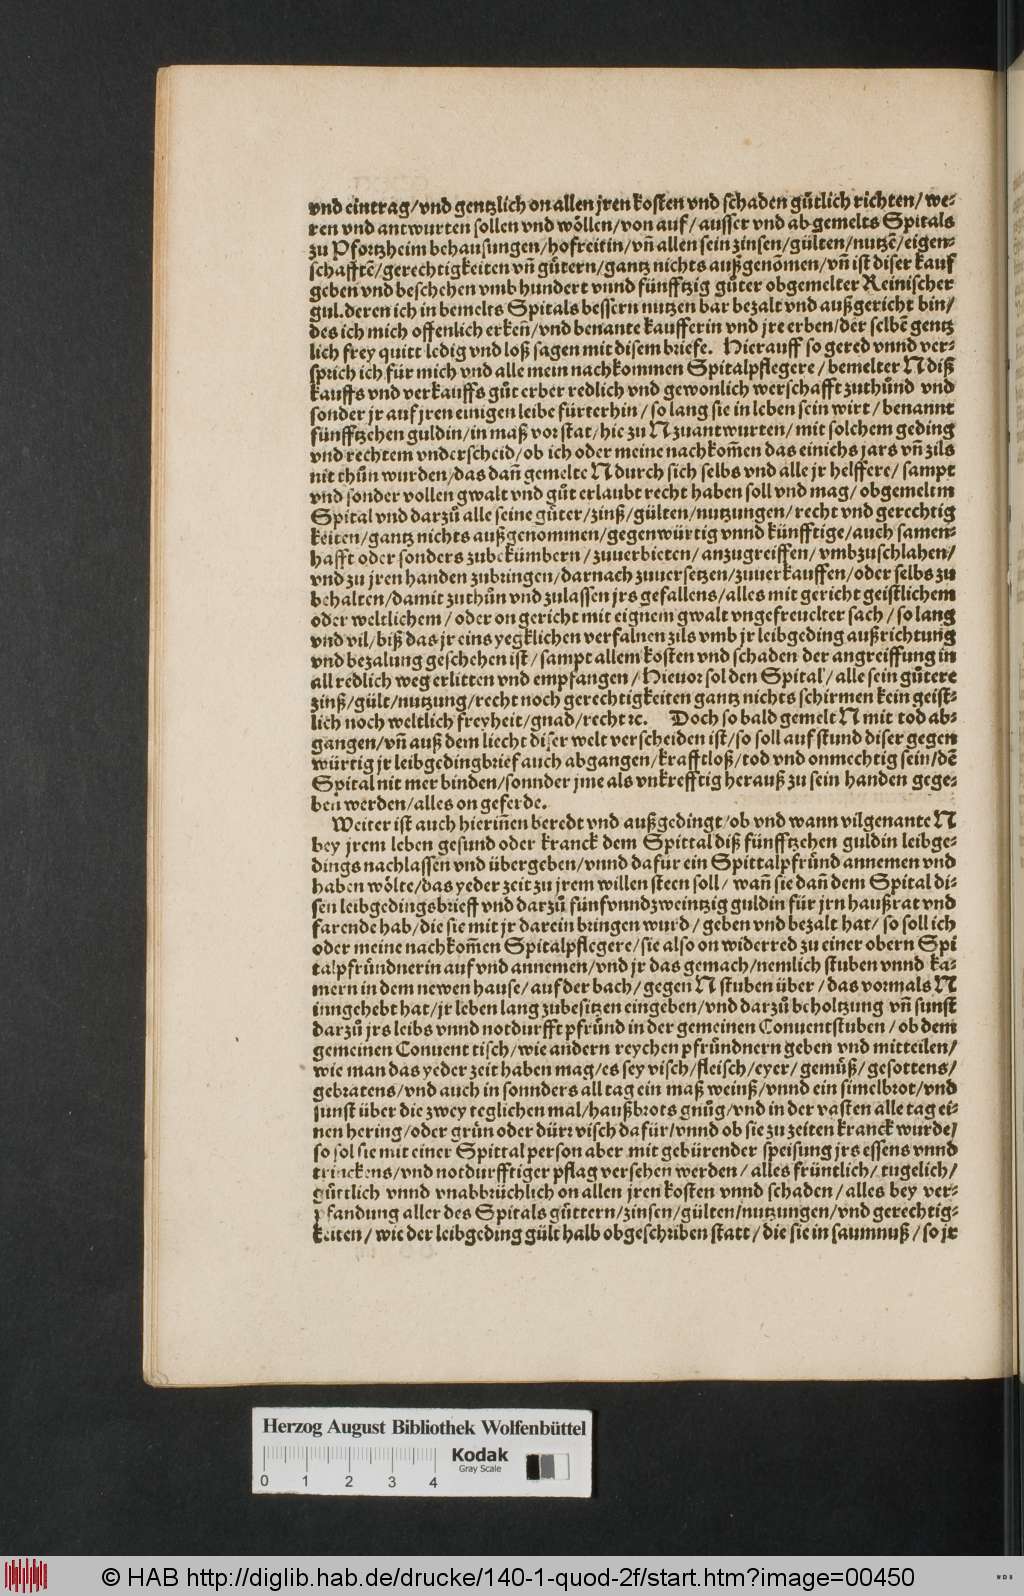 vnd eintrag/vnd gentzlich on allen jren kosten vnd schaden guͤtlich richten/we-
ren vnd antwurten sollen vnd woͤllen/von auf/ausser vnd ab gemelts Spitals
zu Pfortzheim behausungen/hofreitin/vñ allen sein zinsen/gülten/nutzẽ/eigen-
schafftẽ/gerechtigkeiten vñ guͤtern/gantz nichts außgenõmen/vñ ist diser kauf
geben vnd beschehen vmb hundert vnnd fünfftzig guͤter obgemelter Reinischer
gul. deren ich in bemelts Spitals bessern nutzen bar bezalt vnd außgericht bin/
des ich mich offenlich erkeñ/vnd benante kaufferin vnd jre erben/der selbẽ gentz
lich frey quitt ledig vnd loß sagen mit disem briefe. Hierauff so gered vnnd ver-
sprich ich für mich vnd alle mein nachkommen Spitalpflegere/bemelter N diß
kauffs vnd verkauffs guͦt erber redlich vnd gewonlich werschafft zuthuͦnd vnd
sonder jr auf jren einigen leibe fürterhin/so lang sie in leben sein wirt/benannt
fünfftzehen guldin/in maß vor stat/hie zu N zuantwurten/mit solchem geding
vnd rechtem vnderscheid/ob ich oder meine nachkom̃en das einichs jars vñ zils
nit thuͦn wurden/das dañ gemelte N durch sich selbs vnd alle jr helffere/sampt
vnd sonder vollen gwalt vnd guͦt erlaubt recht haben soll vnd mag/obgemeltm
Spital vnd darzuͦ alle seine guͤter/zinß/gülten/nutzungen/recht vnd gerechtig
keiten/gantz nichts außgenommen/gegenwürtig vnnd künfftige/auch samen-
hafft oder sonders zubekümbern/zuuerbieten/anzugreiffen/vmbzuschlahen/
vnd zu jren handen zubringen/darnach zuuersetzen/zuuerkauffen/oder selbs zu
behalten/damit zuthuͦn vnd zulassen jrs gefallens/alles mit gericht geistlichem
oder weltlichem/oder on gericht mit eignem gwalt vngefreuelter sach/so lang
vnd vil/biß das jr eins yegklichen verfalnen zils vmb jr leibgeding außrichtung
vnd bezalung geschehen ist/sampt allem kosten vnd schaden der angreiffung in
all redlich weg erlitten vnd empfangen/Hieuor sol den Spital/alle sein guͤtere
zinß/gült/nutzung/recht noch gerechtigkeiten gantz nichts schirmen kein geist-
lich noch weltlich freyheit/gnad/recht ꝛc. Doch so bald gemelt N mit tod ab-
gangen/vñ auß dem liecht diser welt verscheiden ist/so soll auf stund diser gegen
würtig jr leibgedingbrief auch abgangen/krafftloß/tod vnd onmechtig sein/dẽ
Spital nit mer binden/sonnder jme als vnkrefftig herauß zu sein handen gege-
ben werden/alles on geferde.
Weiter ist auch hieriñen beredt vnd außgedingt/ob vnd wann vilgenante N
bey jrem leben gesund oder kranck dem Spittal diß fünfftzehen guldin leibge-
dings nachlassen vnd übergeben/vnnd dafür ein Spittalpfruͤnd annemen vnd
haben woͤlte/das yeder zeit zu jrem willen steen soll/wañ sie dañ dem Spital di-
sen leibgedingsbrieff vnd darzuͦ fünfvnndzweintzig guldin für jrn haußrat vnd
farende hab/die sie mit jr darein bringen wurd/geben vnd bezalt hat/so soll ich
oder meine nachkom̃en Spitalpflegere/sie also on widerred zu einer obern Spi
talpfruͤndnerin auf vnd annemen/vnd jr das gemach/nemlich stuben vnnd ka-
mern in dem newen hause/auf der bach/gegen N stuben über/das vormals N
inngehebt hat/jr leben lang zubesitzen eingeben/vnd darzuͦ beholtzung vñ sunst
darzuͦ jrs leibs vnnd notdurfft pfruͤnd in der gemeinen Conuentstuben/ob dem
gemeinen Conuent tisch/wie andern reychen pfruͤndnern geben vnd mitteilen/
wie man das yeder zeit haben mag/es sey visch/fleisch/eyer/gemuͤß/gesottens/
gebratens/vnd auch in sonnders all tag ein maß weinß/vnnd ein simelbrot/vnd
sunst über die zwey teglichen mal/haußbrots gnuͦg/vnd in der vasten alle tag ei-
nen hering/oder gruͤn oder dürr visch dafür/vnnd ob sie zu zeiten kranck wurde/
so sol sie mit einer Spittalperson aber mit gebürender speisung jrs essens vnnd
trinckens/vnd notdurfftiger pflag versehen werden/alles fruͤntlich/tugelich/
guͤttlich vnnd vnabbrüchlich on allen jren kosten vnnd schaden/alles bey ver-
pfandung aller des Spitals guͤttern/zinsen/gülten/nutzungen/vnd gerechtig-
keiten/wie der leibgeding gült halb obgeschriben statt/die sie in saumnuß/so jr
Herzog August Bibliothek Wolfenbüttel
Kodak
Gray Scale
0 1 2 3 4
© HAB http://diglib.hab.de/drucke/140-1-quod-2f/start.htm?image=00450